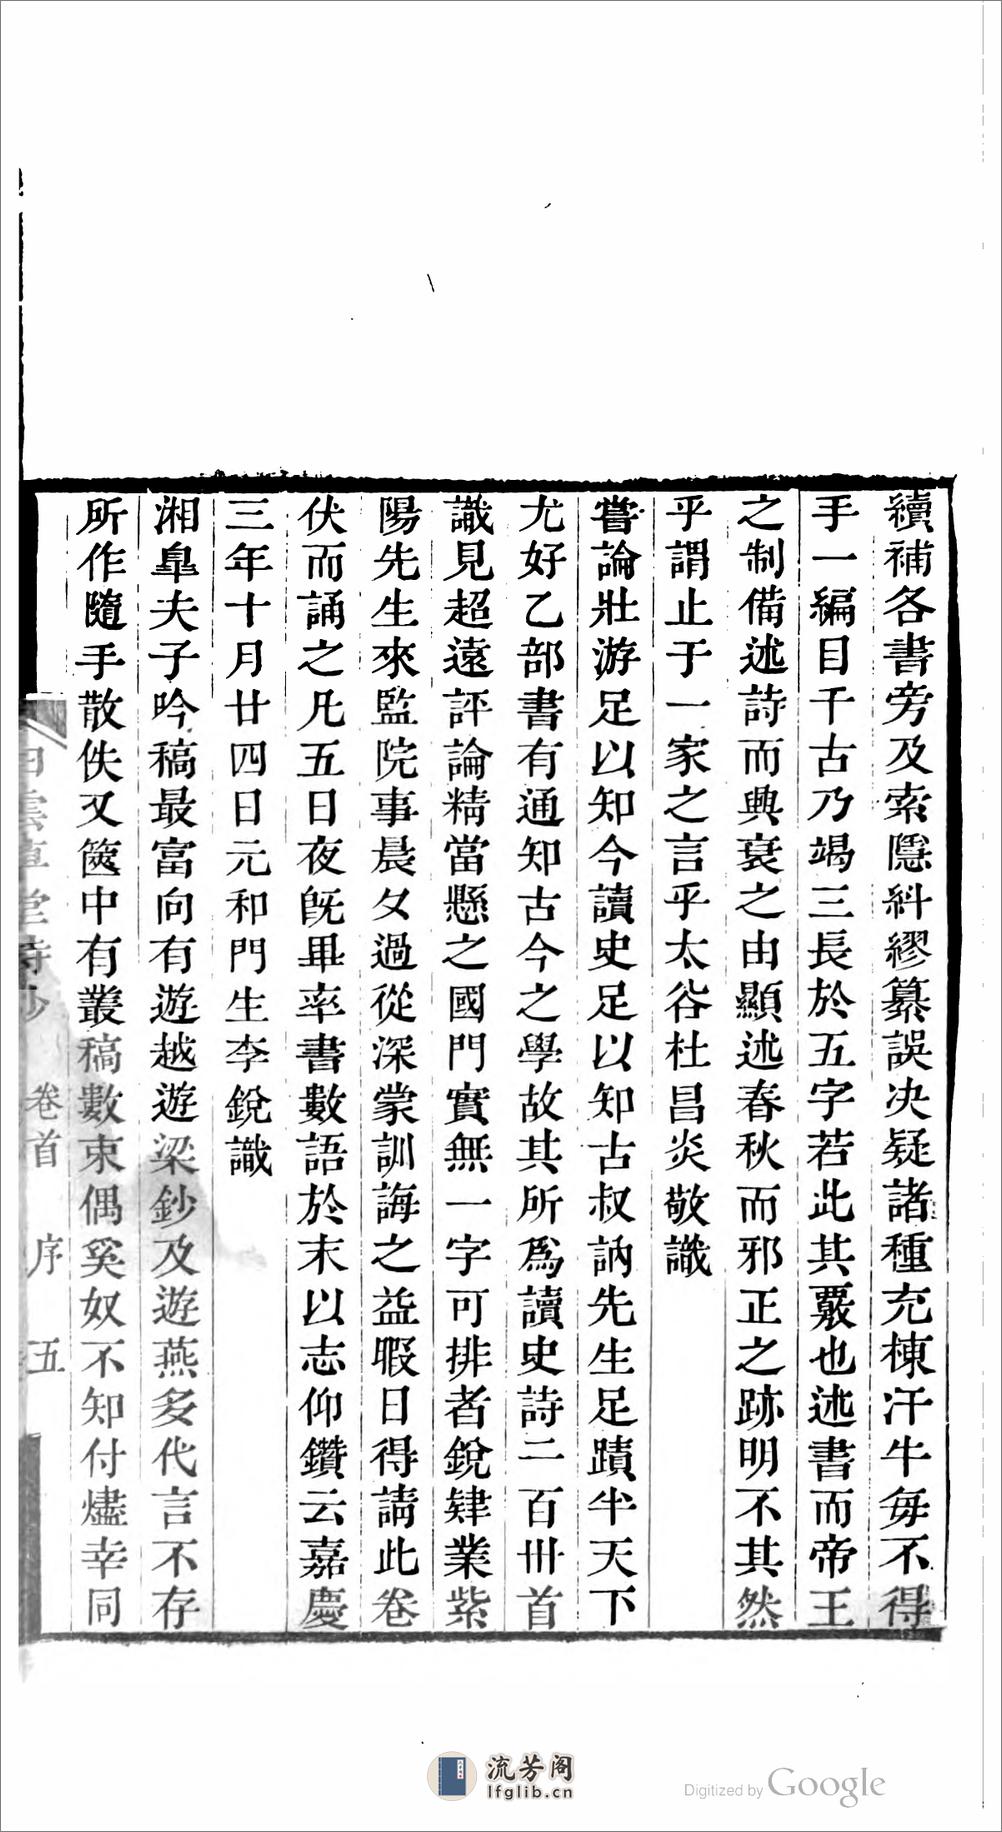 續補各書旁及索隱糾繆纂誤決疑諸種充棟汗牛每不得
手一編目千古乃竭三長於五字若此其覈也述書而帝王
之制備述詩而興衰之由顯述春秋而邪正之跡明不其然
乎謂止于一家之言乎太谷杜昌炎敬識
嘗論壯游足以知今讀史足以知古叔訥先生足蹟半天下
尤好乙部書有通知古今之學故其所爲讀史詩二百卌首
識見超遠評論精當懸之國門實無一字可排者銳肄業紫
陽先生來監院事晨夕過從深蒙訓誨之益暇日得請此卷
伏而誦之凡五日夜旣畢率書數語於末以志仰鑽云嘉慶
三年十月廿四日元和門生李銳識
湘臯夫子吟稿最富向有遊越遊梁鈔及遊燕多代言不存
所作隨手散佚又篋中有叢稿數束偶奚奴不知付燼幸同
白雲草堂詩鈔 卷首 序 五
流芳阁
lfglib.cn
Digitized by Google